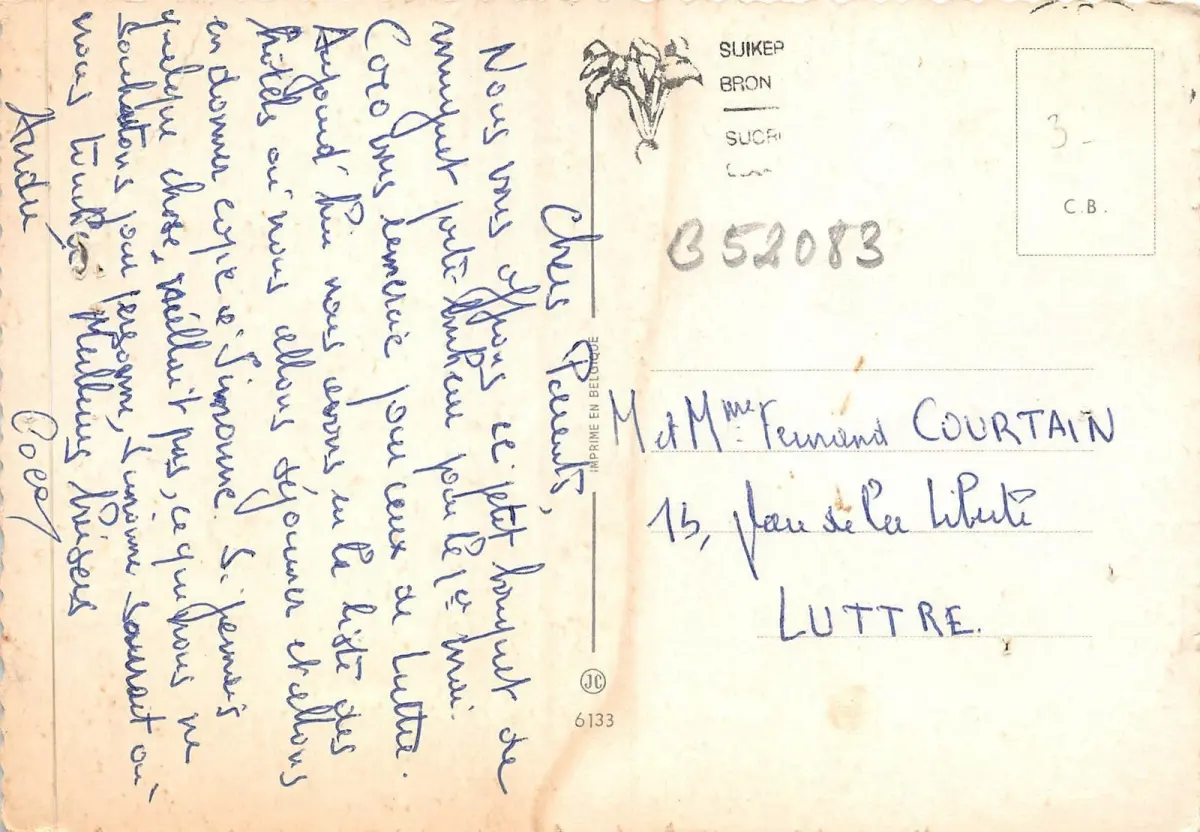 Chers Parents,
Nous vous offrons ce petit bouquet de
muguet porte-bonheur pour le 1er mai.
Coco vous remercie pour ceux de Luttre.
Aujourd'hui nous avons eu la liste des
hôtels où nous allons séjourner et allons
en donner copie à Simonne. Si jamais
quelque chose n'allait pas, ce que nous ne
souhaitons pour personne, Simonne saurait où
nous toucher. Meilleurs baisers
André
SUIKER
BRON
SUCR
B52083
3-
C.B.
IMPRIME EN BELGIQUE
M et Mme Fernand COURTAIN
13, Place de la Liberté
LUTTRE.
JC
6133